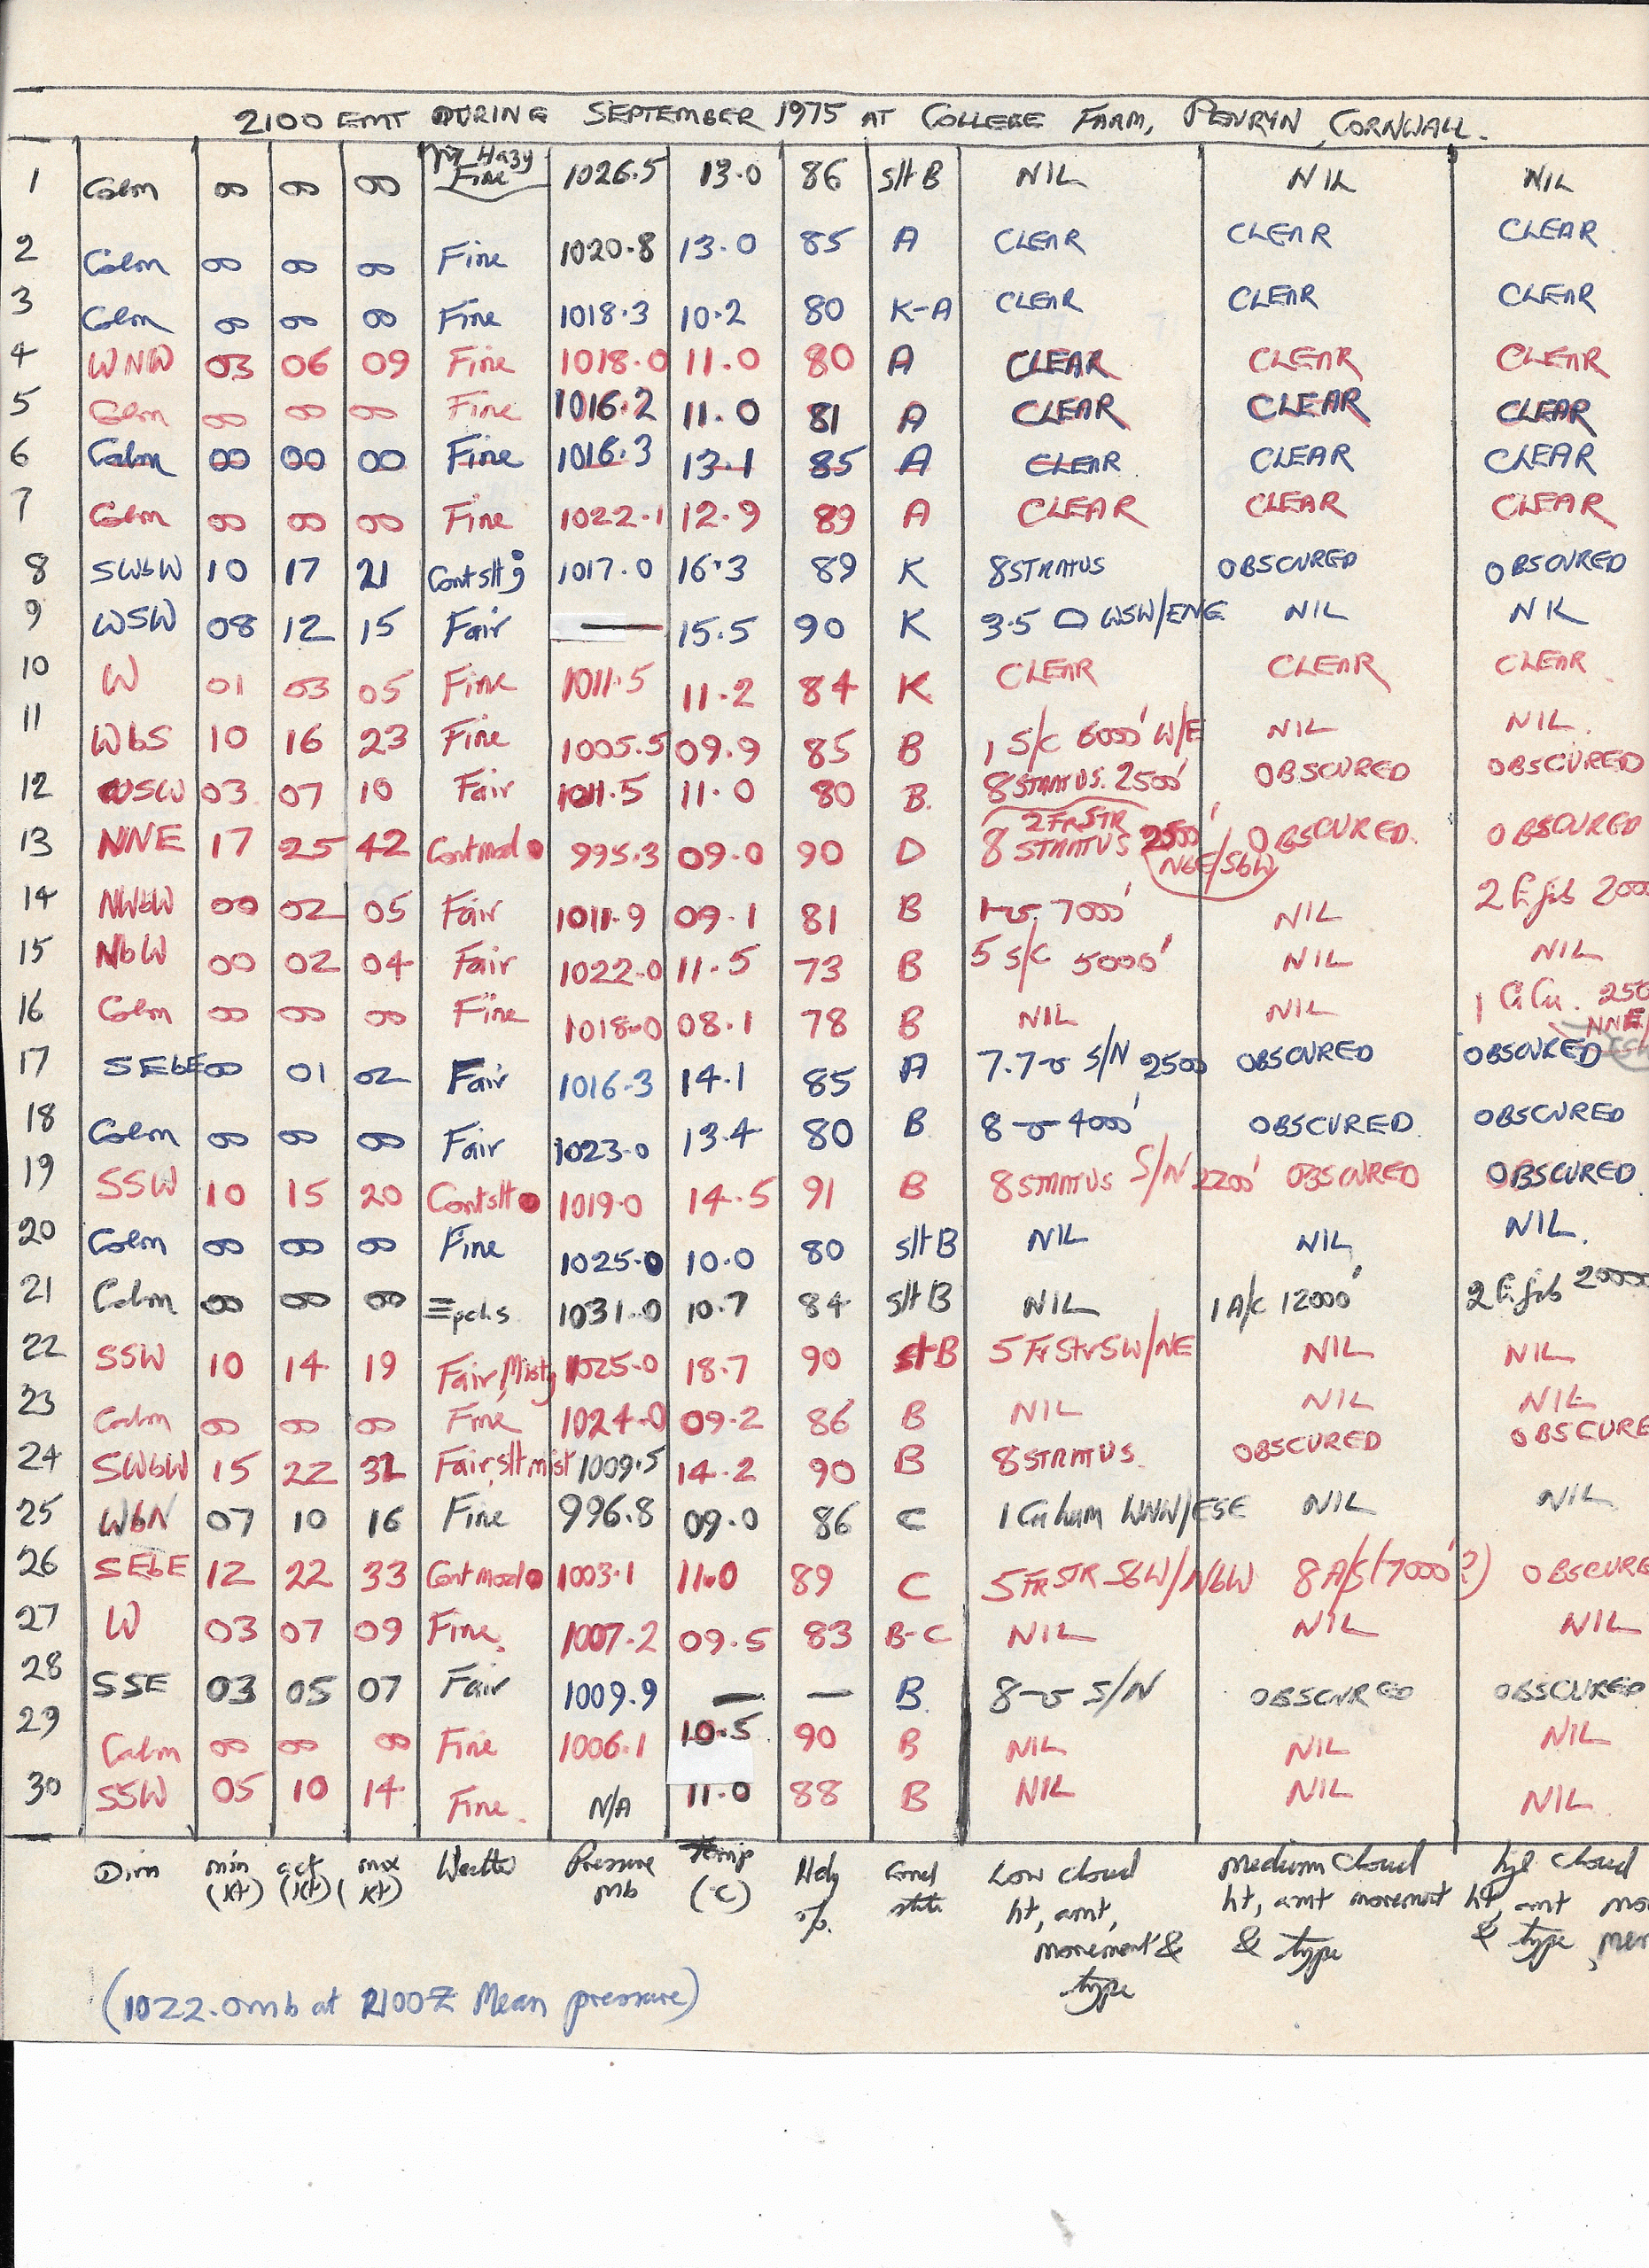 2100 GMT DURING SEPTEMBER 1975 AT COLLEGE FARM, PENRYN, CORNWALL.
1 Calm 00 00 00 Hazy Fine 1026.5 13.0 86 slt B NIL NIL NIL
2 Calm 00 00 00 Fine 1020.8 13.0 85 A CLEAR CLEAR CLEAR
3 Calm 00 00 00 Fine 1018.3 10.2 80 K-A CLEAR CLEAR CLEAR
4 WNW 03 06 09 Fine 1018.0 11.0 80 A CLEAR CLEAR CLEAR
5 Calm 00 00 00 Fine 1016.2 11.0 81 A CLEAR CLEAR CLEAR
6 Calm 00 00 00 Fine 1016.3 13.1 85 A CLEAR CLEAR CLEAR
7 Calm 00 00 00 Fine 1022.1 12.9 89 A CLEAR CLEAR CLEAR
8 SWbW 10 17 21 Cont slt 1017.0 16.3 89 K 8 STRATUS OBSCURED OBSCURED
9 WSW 08 12 15 Fair — 15.5 90 K 3.5 WSW/ENE NIL NK
10 W 01 03 05 Fine 1011.5 11.2 84 K CLEAR CLEAR CLEAR
11 WbS 10 16 23 Fine 1005.5 09.9 85 B 1 S/C 6000' W/E NIL NIL.
12 WSW 03 07 10 Fair 1011.5 11.0 80 B. 8 STRATUS. 2500' OBSCURED OBSCURED
13 NNE 17 25 42 Cont mod ● 995.3 09.0 90 D 2 FRSTR 8 STRATUS 2500' NbE/SbW OBSCURED. OBSCURED
14 NWbW 00 02 05 Fair 1011.9 09.1 81 B 1 7000' NIL 2 Ci fib 2000
15 NbW 00 02 04 Fair 1022.0 11.5 73 B 5 S/C 5000' NIL NIL
16 Calm 00 00 00 Fine 1018.0 08.1 78 B NIL NIL 1 CiCu. 250 NNE/
17 SEbE 00 01 02 Fair 1016.3 14.1 85 A 7.7 S/N 2500 OBSCURED OBSCURED
18 Calm 00 00 00 Fair 1023.0 13.4 80 B 8 4000' OBSCURED OBSCURED
19 SSW 10 15 20 Cont slt ● 1019.0 14.5 91 B 8 STRATUS S/N 2200' OBSCURED OBSCURED
20 Calm 00 00 00 Fine 1025.0 10.0 80 slt B NIL NIL NIL.
21 Calm 00 00 00 ≡pchs 1031.0 10.7 84 slt B NIL 1 A/C 12000' 2 Ci fib 20000
22 SSW 10 14 19 Fair, Misty 1025.0 18.7 90 slt B 5 Fr Str SW/NE NIL NIL
23 Calm 00 00 00 Fine 1024.0 09.2 86 B NIL NIL NIL
24 SWbW 15 22 32 Fair, slt mist 1009.5 14.2 90 B 8 STRATUS. OBSCURED OBSCURE
25 WbN 07 10 16 Fine 996.8 09.0 86 C 1 Cu hum WNW/ESE NIL NIL
26 SEbE 12 22 33 Cont mod ● 1003.1 11.0 89 C 5 FR STR SbW/NbW 8 A/S (7000'?) OBSCURE
27 W 03 07 09 Fine. 1007.2 09.5 83 B-C NIL NIL NIL
28 SSE 03 05 07 Fair 1009.9 — — B. 8 S/N OBSCURED OBSCURED
29 Calm 00 00 00 Fine 1006.1 10.5 90 B NIL NIL NIL
30 SSW 05 10 14 Fine. N/A 11.0 88 B NIL NIL NIL
Dirn min (Kt) act (Kt) max (Kt) Weather Pressure mb Temp (°C) Hdy %. Grnd state Low Cloud ht, amt, movement & type Medium Cloud ht, amt movement & type hgh Cloud ht, amt mo & type, men
(1022.0mb at 2100Z Mean pressure)